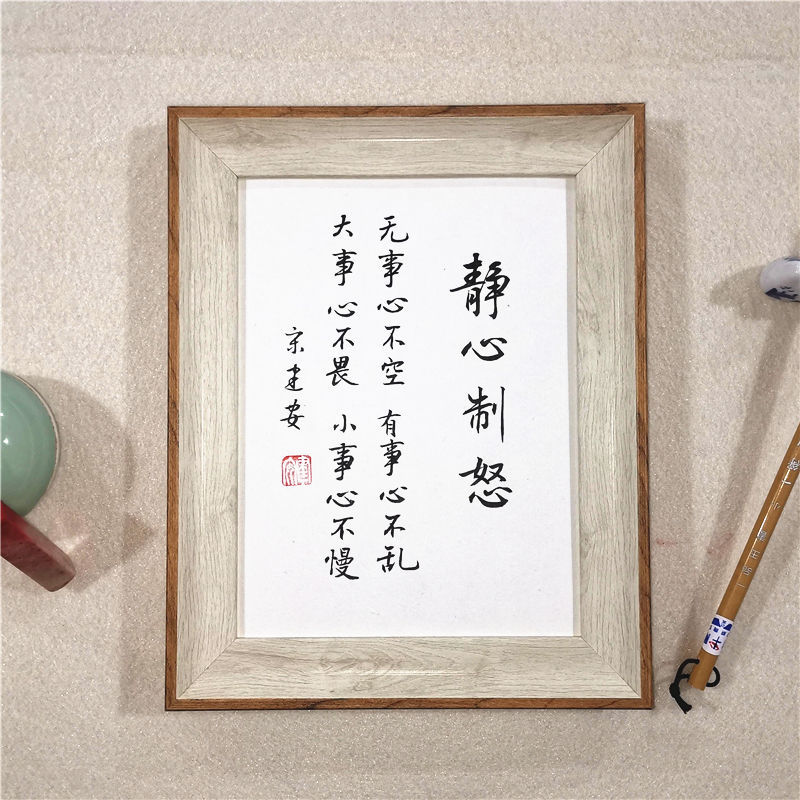 静心制怒
无事心不空 有事心不乱
大事心不畏 小事心不慢
宋建安